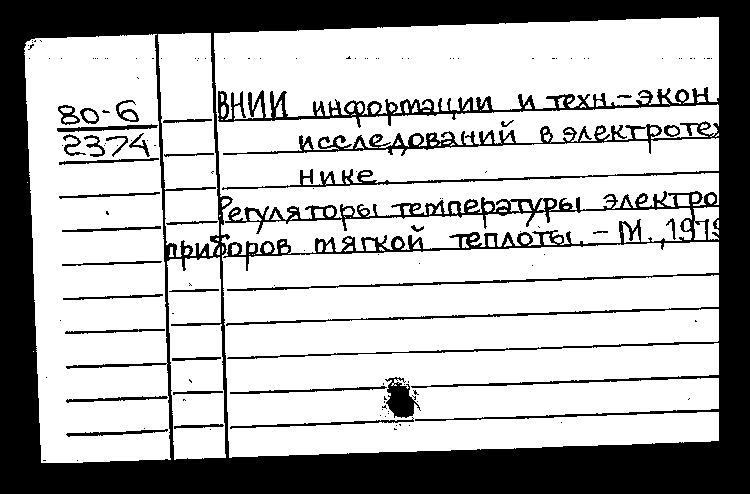 80-6
2374
ВНИИ информации и техн.-экон.
исследований в электроте
нике.
Регуляторы температуры электро
приборов мягкой теплоты. - М., 1979